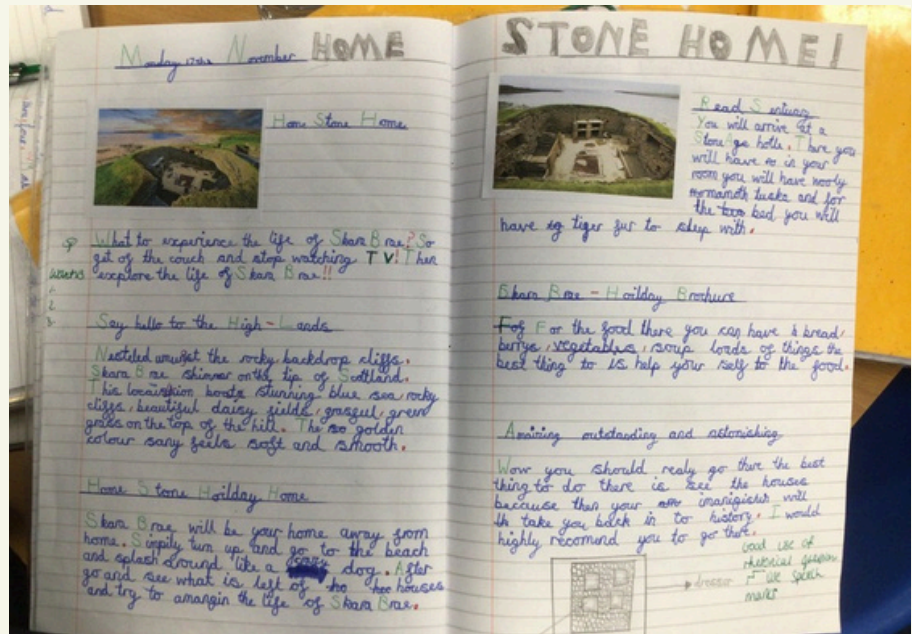 Monday 17th November HOME
Home Stone Home
What to experience the life of Skara Brae? So
get of the couch and stop watching TV! Then
explore the life of Skara Brae!!
Say hello to the High-Lands
Nesteled amungst the rocky backdrop cliffs.
Skara Brae shimmer on the tip of Scottland.
This locaishion boosts stunning blue sea, rocky
cliffs, beautiful daisy fields, grasful, green
grass on the top of the hill. The so golden
colour sany feels soft and smooth.
Home Stone Hoilday Home
Skara Brae will be your home away from
home. Simpily turn up and go to the beach
and splash around like a dog. After
go and see what is left of houses
and try to amangin the life of Skara Brae.
STONE HOME!
Read Sentury
You will arrive at a
Stone Age hotle. There you
will have in your
room you will have wooly
mamoth tusks and for
the bed you will
have tiger fur to sleep with.
Skara Brae - Hoilday Brochure
For the good there you can have bread,
berrys, vegetables, soup loads of things the
best thing to is help your self to the food.
Amizing outstanding and astonishing
Wow you should realy go there the best
thing to do there is see the houses
because then your imanigishin will
take you back in to history. I would
highly recomend you to go there.
Good use of
rhetorical question
T - use speech
marks
dresser
sp
1
2
3